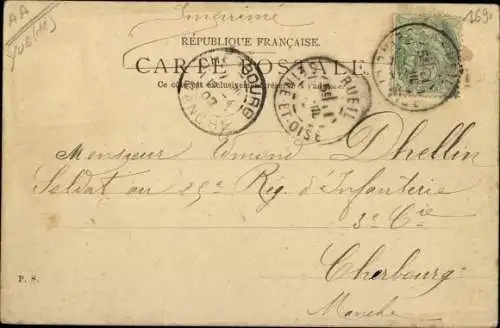 AA
1690
Imprimé
RÉPUBLIQUE FRANÇAISE.
CARTE POSTALE
Ce côté exclusivement réservé à l'adresse.
RUEIL
SEINE-ET-OISE
Monsieur Edmond Dhellin
Soldat au 25e Rég. d'Infanterie
3e Cie
Cherbourg
P. S.
Manche